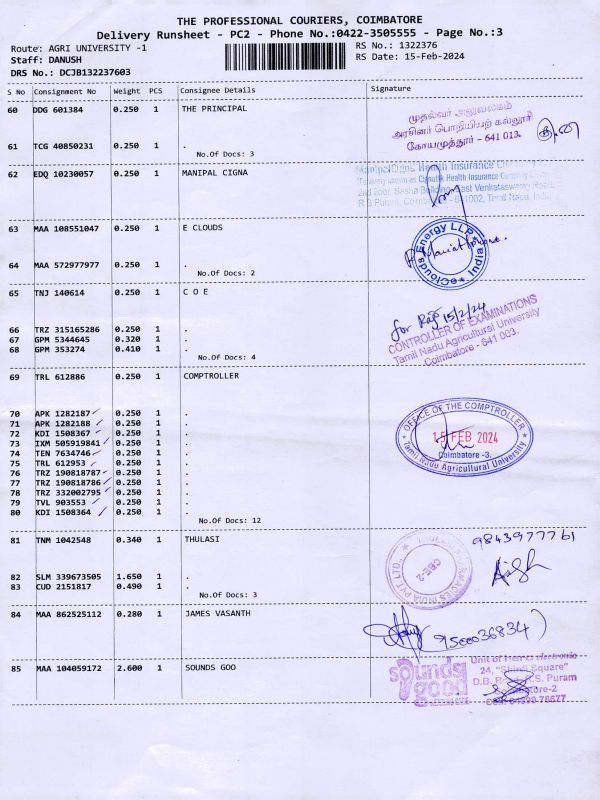 THE PROFESSIONAL COURIERS, COIMBATORE
Delivery Runsheet - PC2 - Phone No.:0422-3505555 - Page No.:3
Route: AGRI UNIVERSITY -1
RS No.: 1322376
Staff: DANUSH
RS Date: 15-Feb-2024
DRS No.: DCJB132237603
S No Consignment No Weight PCS Consignee Details Signature
60 DDG 601384 0.250 1 THE PRINCIPAL
முதல்வர் அலுவலகம்
அரசினர் பொறியியற் கல்லூரி
கோயமுத்தூர் - 641 013.
61 TCG 40850231 0.250 1 .
No.Of Docs: 3
62 EDQ 10230057 0.250 1 MANIPAL CIGNA
ManipalCigna Health Insurance Company
2nd Floor, Venkataswamy Road,
R S Puram, 641002, Tamil Nadu, India
63 MAA 108551047 0.250 1 E CLOUDS
eCloudss Energy LLP India
64 MAA 572977977 0.250 1 .
No.Of Docs: 2
65 TNJ 140614 0.250 1 C O E
for 15/2/24
CONTROLLER OF EXAMINATIONS
Tamil Nadu Agricultural University
Coimbatore - 641 003.
66 TRZ 315165286 0.250 1 .
67 GPM 5344645 0.320 1 .
68 GPM 353274 0.410 1 .
No.Of Docs: 4
69 TRL 612886 0.250 1 COMPTROLLER
OFFICE OF THE COMPTROLLER
15 FEB 2024
Coimbatore -3.
Tamil Nadu Agricultural University
70 APK 1282187 0.250 1 .
71 APK 1282188 0.250 1 .
72 KDI 1508367 0.250 1 .
73 IXM 505919841 0.250 1 .
74 TEN 7634746 0.250 1 .
75 TRL 612953 0.250 1 .
76 TRZ 190818787 0.250 1 .
77 TRZ 190818786 0.250 1 .
78 TRZ 332002795 0.250 1 .
79 TVL 903553 0.250 1 .
80 KDI 1508364 0.250 1 .
No.Of Docs: 12
81 TNM 1042548 0.340 1 THULASI
9843977761
INDIA PVT LTD.
CBE-2
82 SLM 339673505 1.650 1 .
83 CUD 2151817 0.490 1 .
No.Of Docs: 3
84 MAA 862525112 0.280 1 JAMES VASANTH
9500036834
85 MAA 104059172 2.600 1 SOUNDS GOO
sounds good
Unit of electronic
24, "Shinji Square"
D.B. R.S. Puram